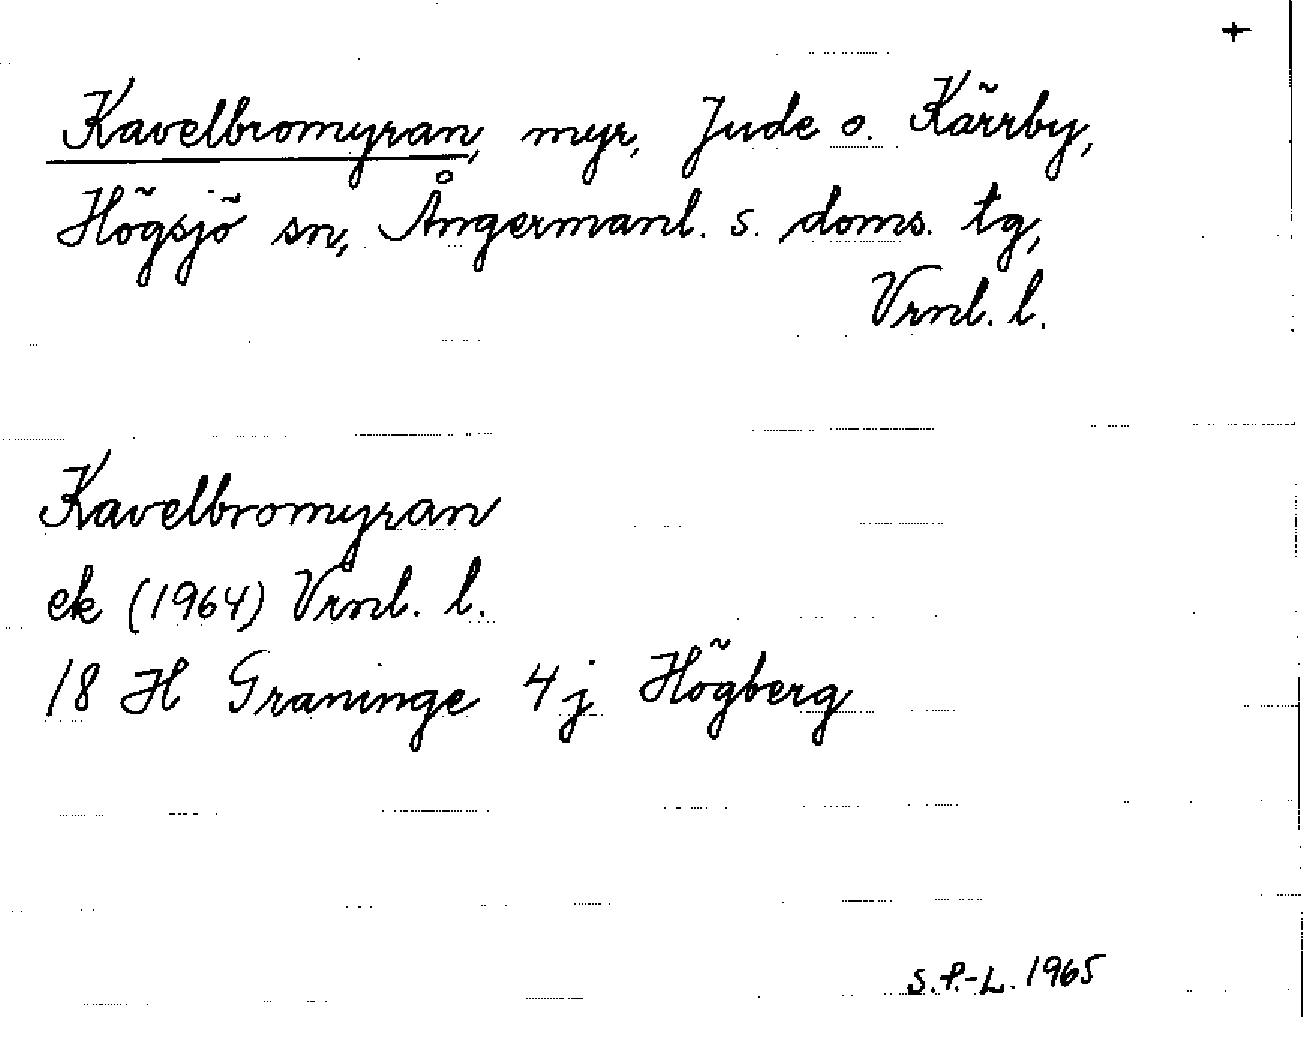 +
Kavelbromyran, myr, Jude o. Kärrby,
Högsjö sn, Ångermanl. s. doms. tg,
Vrnl. l.
Kavelbromyran
ek (1964) Vrnl. l.
18 H Graninge 4 j Högberg
S.P.-L. 1965